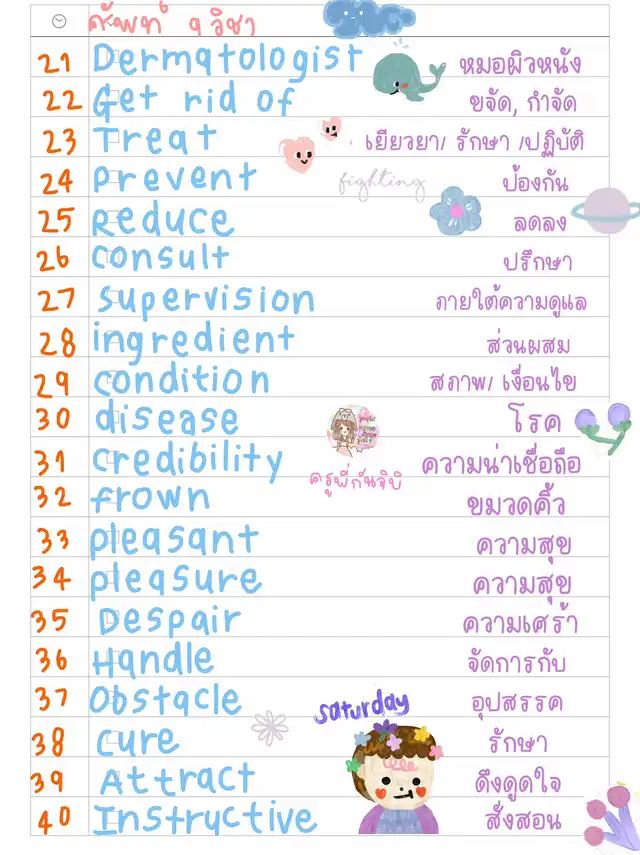 ศัพท์ ๑ วิชา
21 Dermatologist หมอผิวหนัง
22 Get rid of ขจัด, กำจัด
23 Treat เยียวยา/ รักษา /ปฏิบัติ
24 prevent fighting ป้องกัน
25 Reduce ลดลง
26 consult ปรึกษา
27 supervision ภายใต้ความดูแล
28 ingredient ส่วนผสม
29 condition สภาพ/ เงื่อนไข
30 disease โรค
31 credibility ความน่าเชื่อถือ
ครูพี่กันจิบิ
32 frown ขมวดคิ้ว
33 pleasant ความสุข
34 pleasure ความสุข
35 Despair ความเศร้า
36 Handle จัดการกับ
37 Obstacle อุปสรรค
saturday
38 cure รักษา
39 Attract ดึงดูดใจ
40 Instructive สั่งสอน